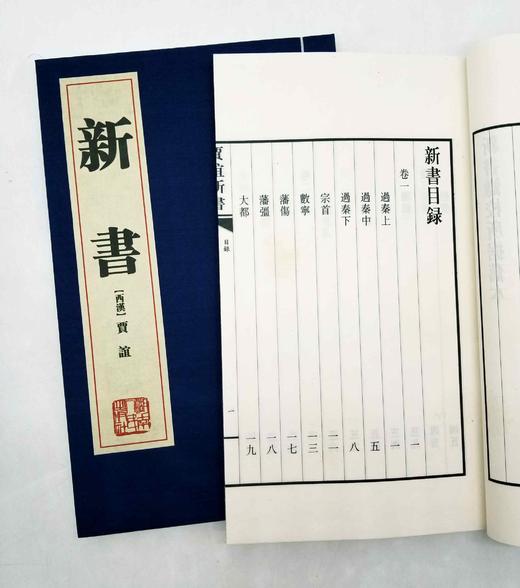 新書
[西漢] 賈誼
新書目録
卷一
過秦上 一
過秦中 五
過秦下 八
宗首 一一
數寧 一三
藩傷 一七
藩彊 一八
大都 一九
賈誼新書
目録
一